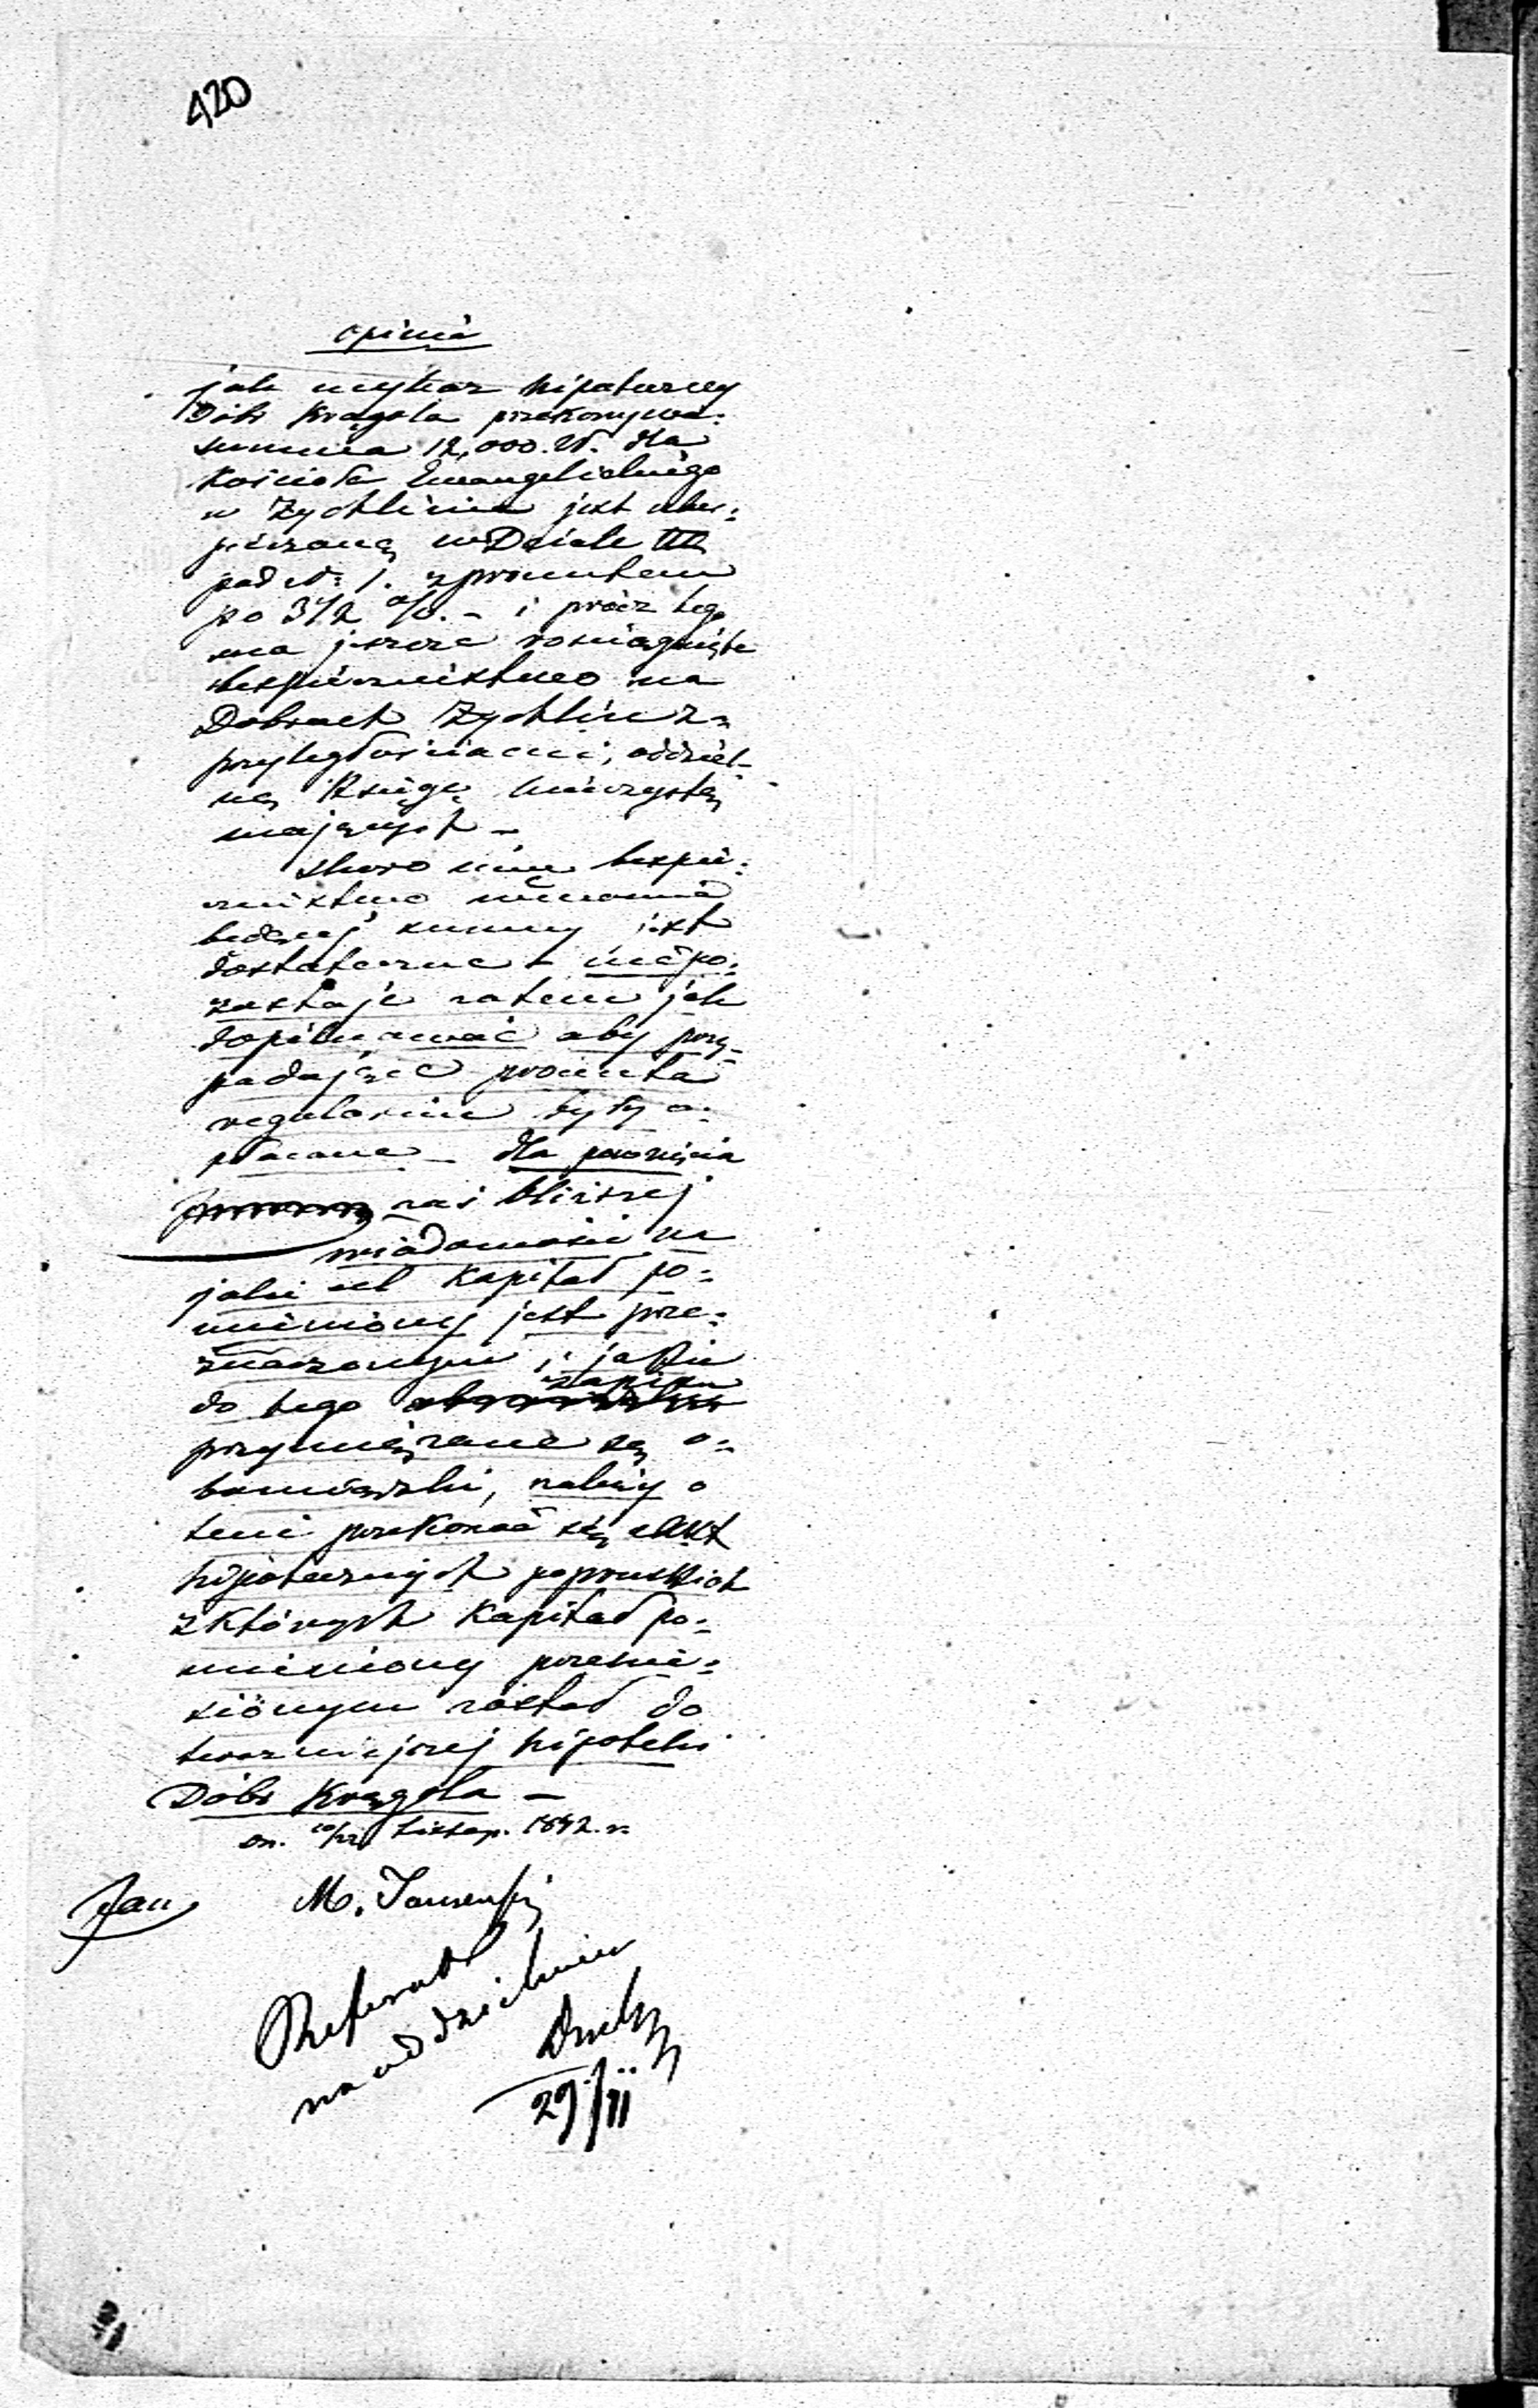 420
opinia
jak wykaz hipoteczny
Dóbr Krągola przekonywa:
summa 12,000. zł. dla
Kościoła Ewangelickiego
w Żychlinie jest ube:
pieczoną w Dziale III
pod N: 1. z procentem
po 3 1/2 %. – i prócz tego
ma jeszcze rosciągnięte
bespieczeństwo na
Dobrach Żychlin z
przyległościami, oddziel-
ną Księgę Wieczystą
mających –
skoro więc bespie:
czeństwo
będącej summy jest
dostateczne – nie po:
zostaje zatem jak
dopilnować aby przy-
padające procenta
regularnie były o:
płacane – dla powzięcia
zaś bliższej
wiadomości na
jaki cel Kapitał po:
mieniony jest prze:
znaczonym i jakie
do tego zapisu
przywiązane są o:
bowiązki, należy o
tem przekonać się z akt
hipotecznych popruskich
z których Kapitał po:
mieniony przenie:
sionym został do
teraźniejszej hipoteki
Dóbr Krągola –
dn. 10/22 Listop. 1842. r.
Jan
M.
Referat
na oddzielnem
29/11